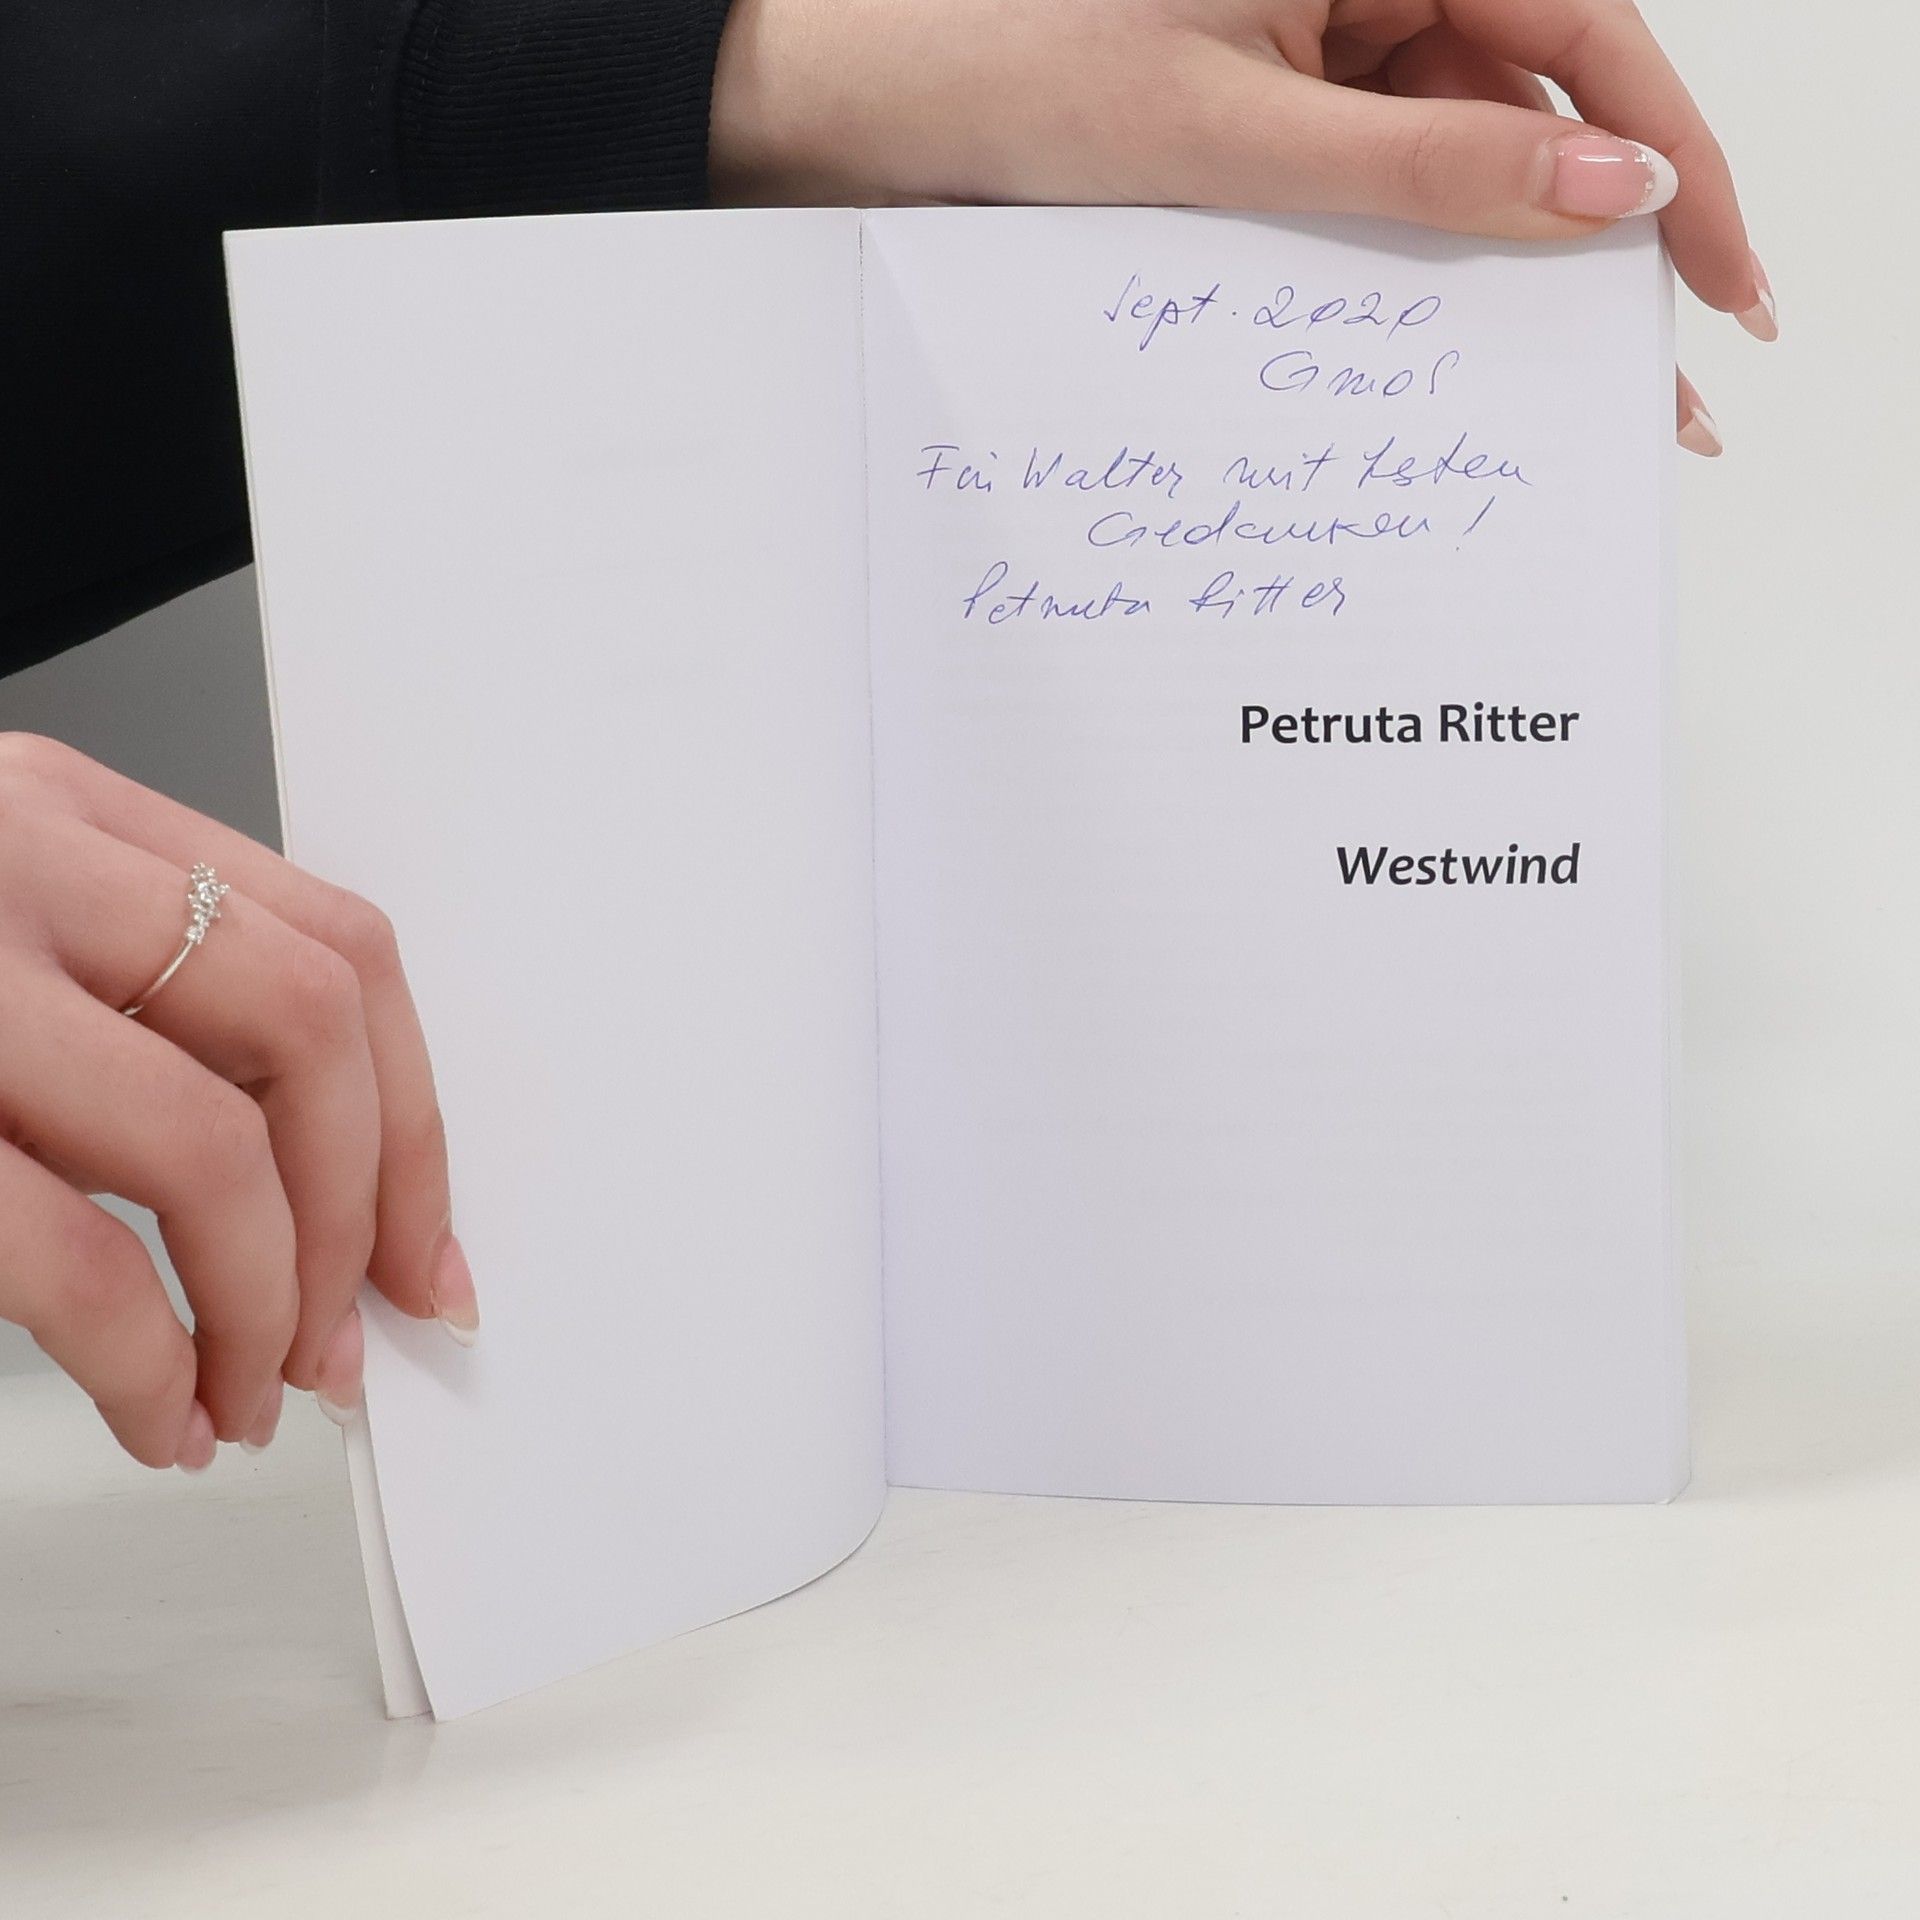 Sept. 2020
Gmos
Für Walter mit besten
Gedanken!
Petruta Ritter
Petruta Ritter
Westwind